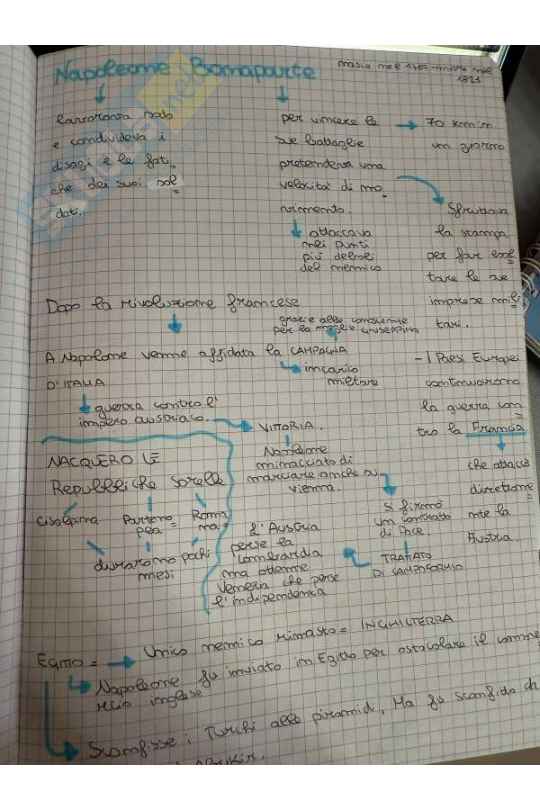 Napoleone Bonaparte
nasce nel 1769-muore nel
1821
per vincere le
sue battaglie
pretendeva una
velocità di mo
vimento.
attaccava
nei punti
più deboli
del nemico
70 km in
un giorno
e condivideva i
disagi e le fati
che dei suoi sol
dati.
Sfruttava
la stampa
per fare esal
tare le sue
imprese mili
tari.
Dopo la rivoluzione francese
grazie alle conoscenze
per la moglie giuseppina
A Napoleone venne affidata la CAMPAGNA
D'ITALIA
incarico
militare
guerra contro l'
impero austriaco.
VITTORIA.
Napoleone
minacciato di
marciare anche su
vienna.
- I Paesi Europei
continuarono
la guerra con
tro la Francia
che attaccò
direttame
nte la
Austria.
NACQUERO LE
Repubbliche Sorelle
Cisalpina
Parteno
pea
Roma
na
durarono pochi
mesi
Si firmò
un contratto
di Pace
TRATTATO
DI CAMPOFORMIO
L'Austria
perse la
Lombardia
ma ottenne
Venezia che perse
l'indipendenza
EGITTO =
Unico nemico rimasto = INGHILTERRA
Napoleone fu inviato in Egitto per ostacolare il comme
rcio inglese
Sconfisse i Turchi alle piramidi, Ma fu sconfitto